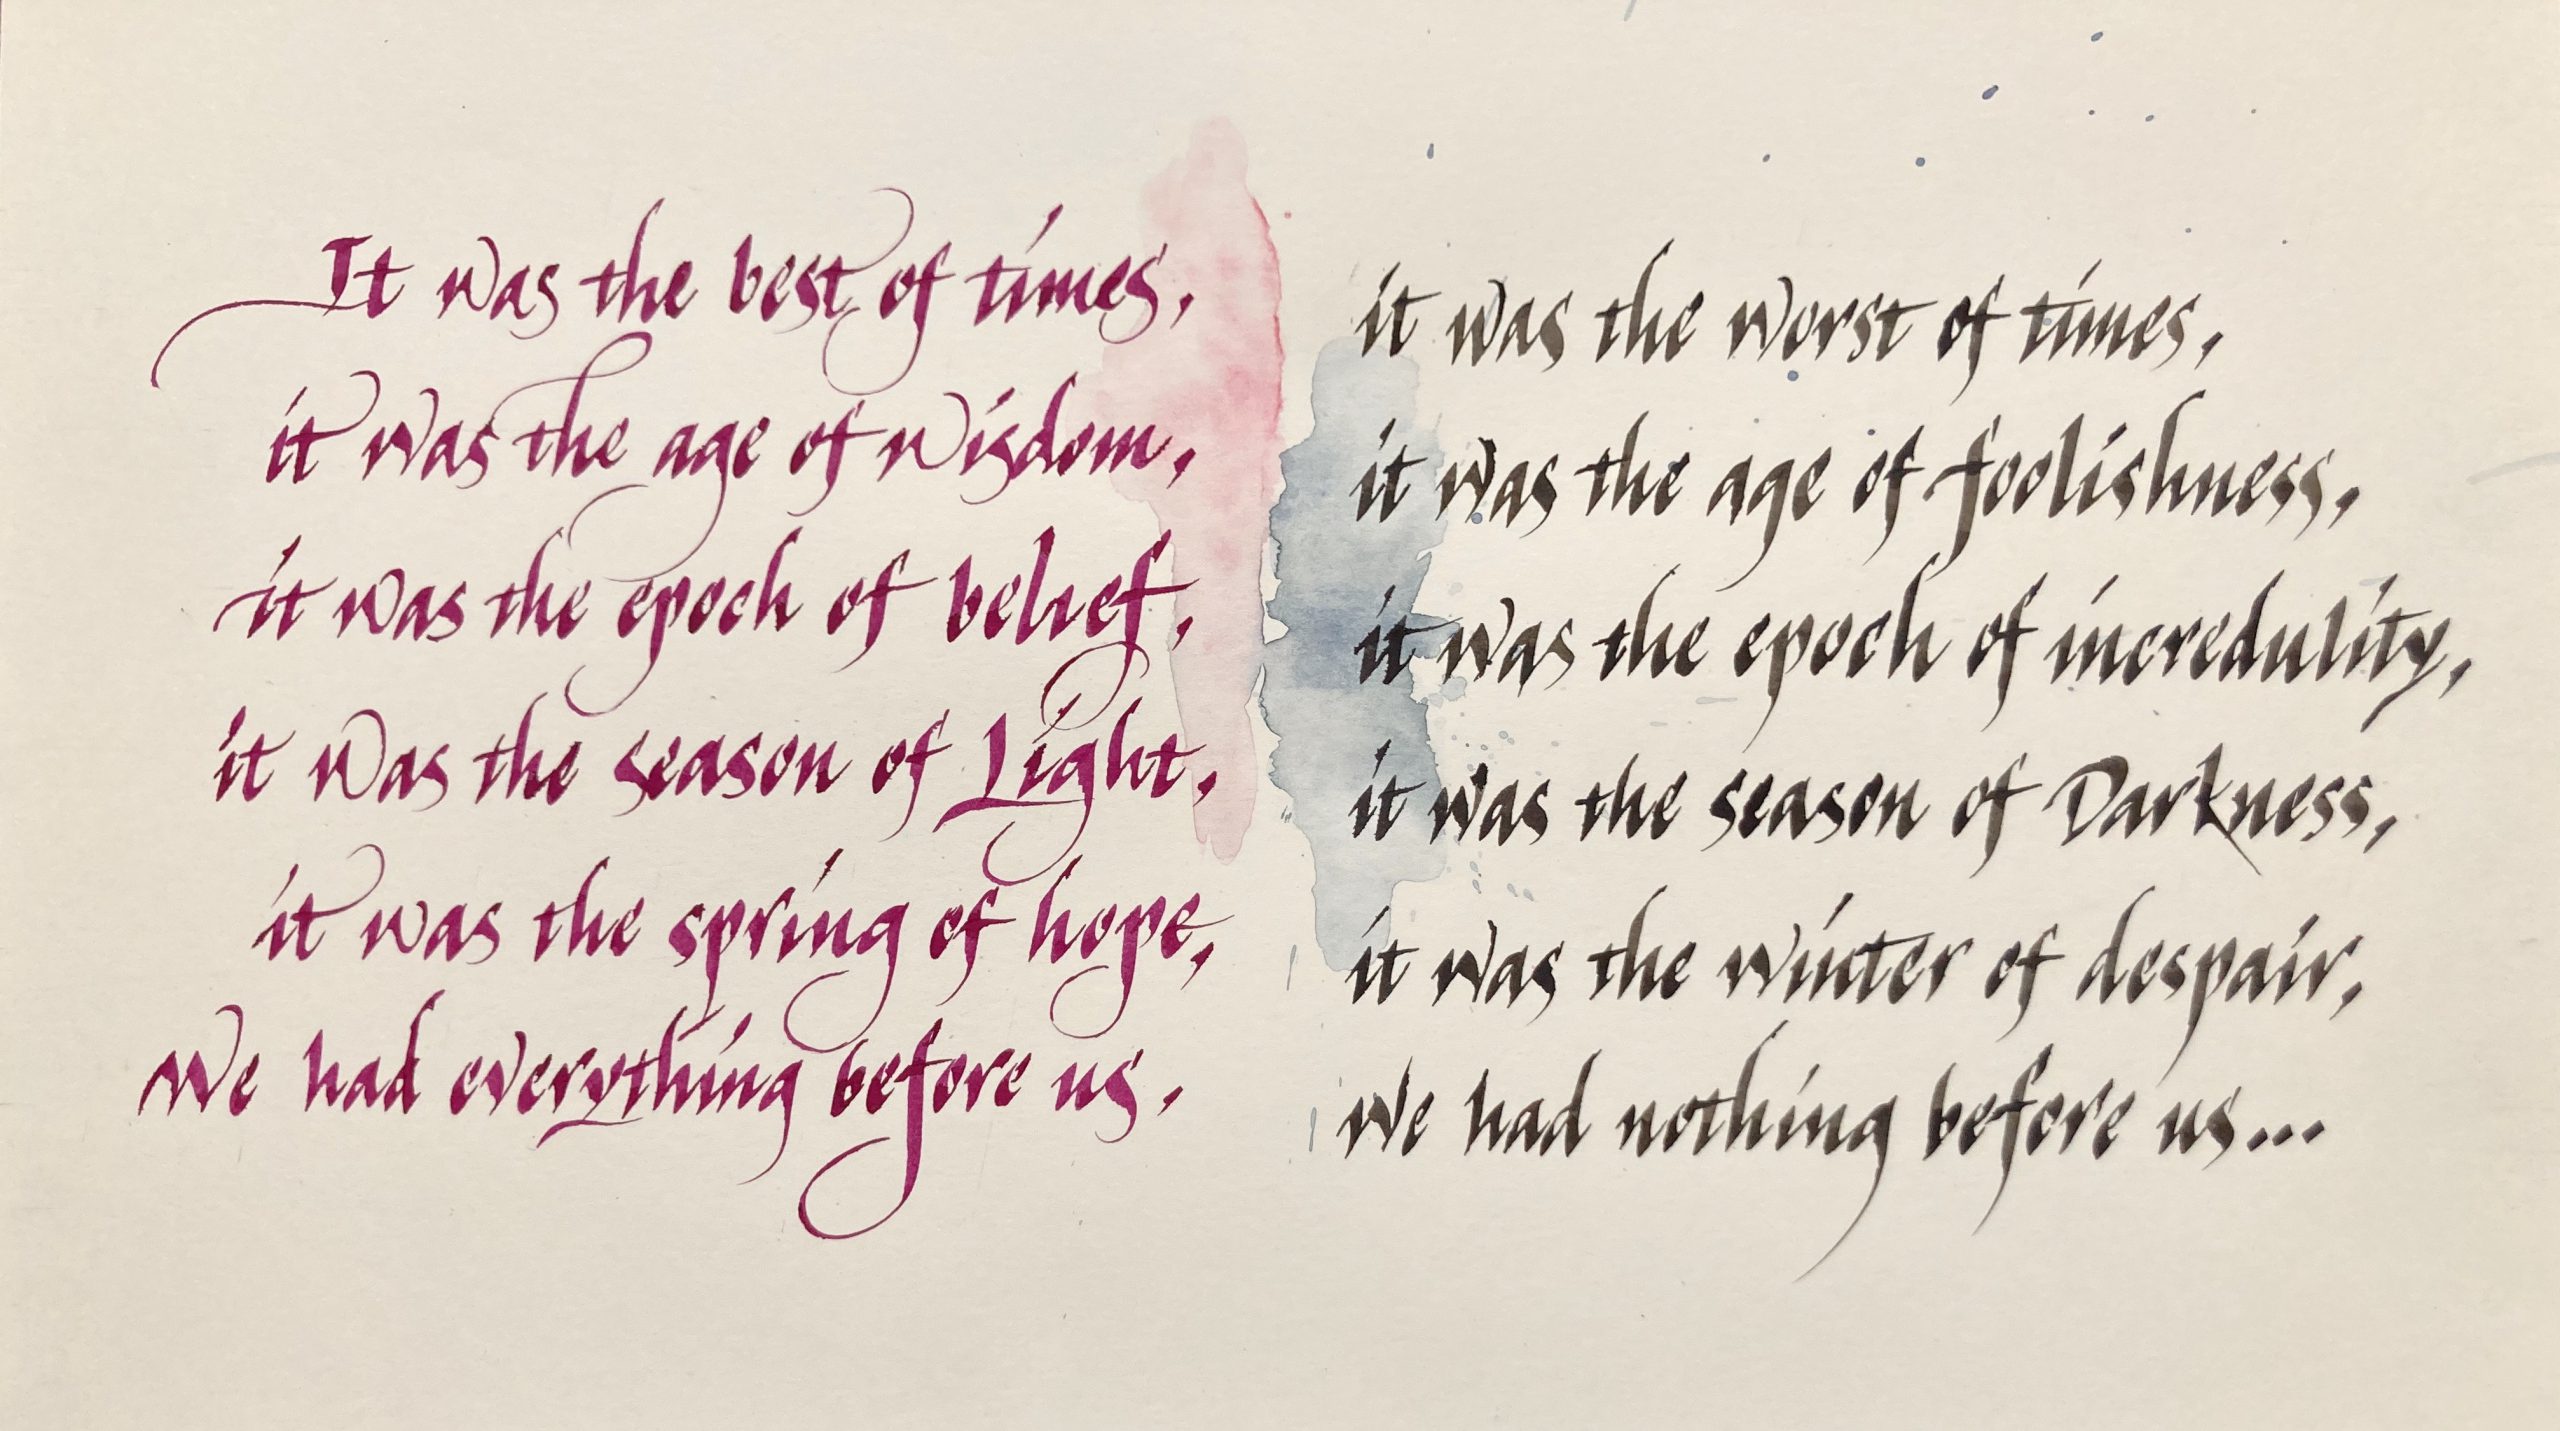 It was the best of times,
it was the age of wisdom,
it was the epoch of belief,
it was the season of Light,
it was the spring of hope,
We had everything before us,
it was the worst of times,
it was the age of foolishness,
it was the epoch of incredulity,
it was the season of Darkness,
it was the winter of despair,
We had nothing before us...